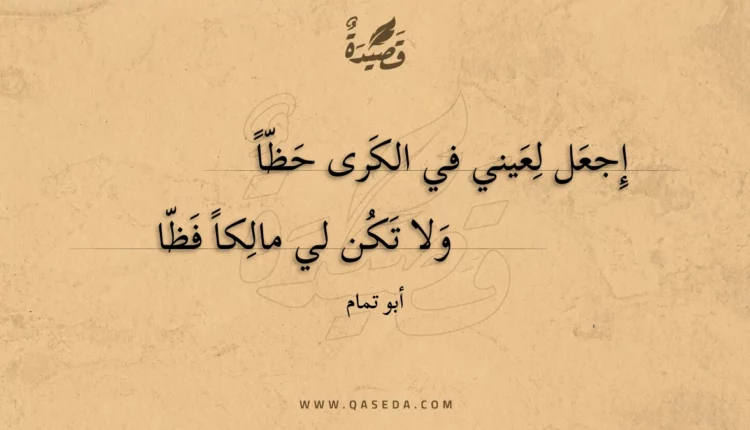 قَصِيدَةٌ
إِجعَل لِعَيني في الكَرى حَظّاً
وَلا تَكُن لي مالِكاً فَظّا
أبو تمام
WWW.QASEDA.COM